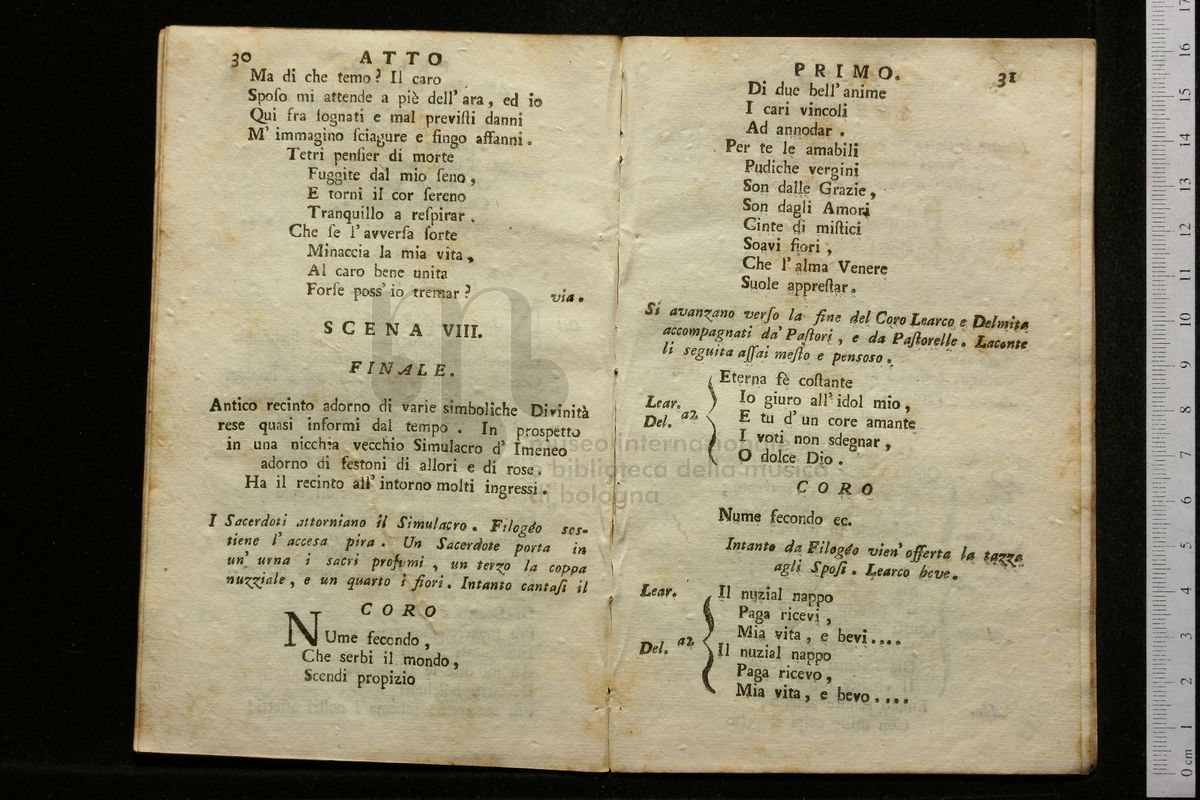 30 ATTO
Ma di che temo? Il caro
Spoſo mi attende a piè dell' ara, ed io
Qui fra ſognati e mal previſti danni
M' immagino ſciagure e fingo affanni.
Tetri penſier di morte
Fuggite dal mio ſeno,
E torni il cor ſereno
Tranquillo a reſpirar.
Che ſe l' avverſa ſorte
Minaccia la mia vita,
Al caro bene unita
Forſe poss' io tremar? via.
SCENA VIII.
FINALE.
Antico recinto adorno di varie simboliche Divinità
rese quasi informi dal tempo. In prospetto
in una nicchia vecchio Simulacro d' Imeneo
adorno di festoni di allori e di rose.
Ha il recinto all' intorno molti ingressi.
I Sacerdoti attorniano il Simulacro. Filogéo sos-
tiene l' accesa pira. Un Sacerdote porta in
un' urna i sacri profumi, un terzo la coppa
nuzziale, e un quarto i fiori. Intanto cantaſi il
CORO
NUme fecondo,
Che serbi il mondo,
Scendi propizio
PRIMO. 31
Di due bell' anime
I cari vincoli
Ad annodar.
Per te le amabili
Pudiche vergini
Son dalle Grazie,
Son dagli Amori
Cinte di miſtici
Soavi fiori,
Che l' alma Venere
Suole appreſtar.
Si avanzano verſo la fine del Coro Learco e Delmita
accompagnati da' Paſtori, e da Paſtorelle. Laconte
li seguita aſſai meſto e pensoso.
Eterna fè coſtante
Lear. Io giuro all' idol mio,
Del. a2. E tu d' un core amante
I voti non sdegnar,
O dolce Dio.
CORO
Nume fecondo ec.
Intanto da Filogéo vien' offerta la tazza
agli Spoſi. Learco beve.
Lear. Il nuzial nappo
Paga ricevi,
Mia vita, e bevi....
Del. a2. Il nuzial nappo
Paga ricevo,
Mia vita, e bevo....
museo internazionale
e biblioteca della musica
di bologna
0 cm 1 2 3 4 5 6 7 8 9 10 11 12 13 14 15 16 17